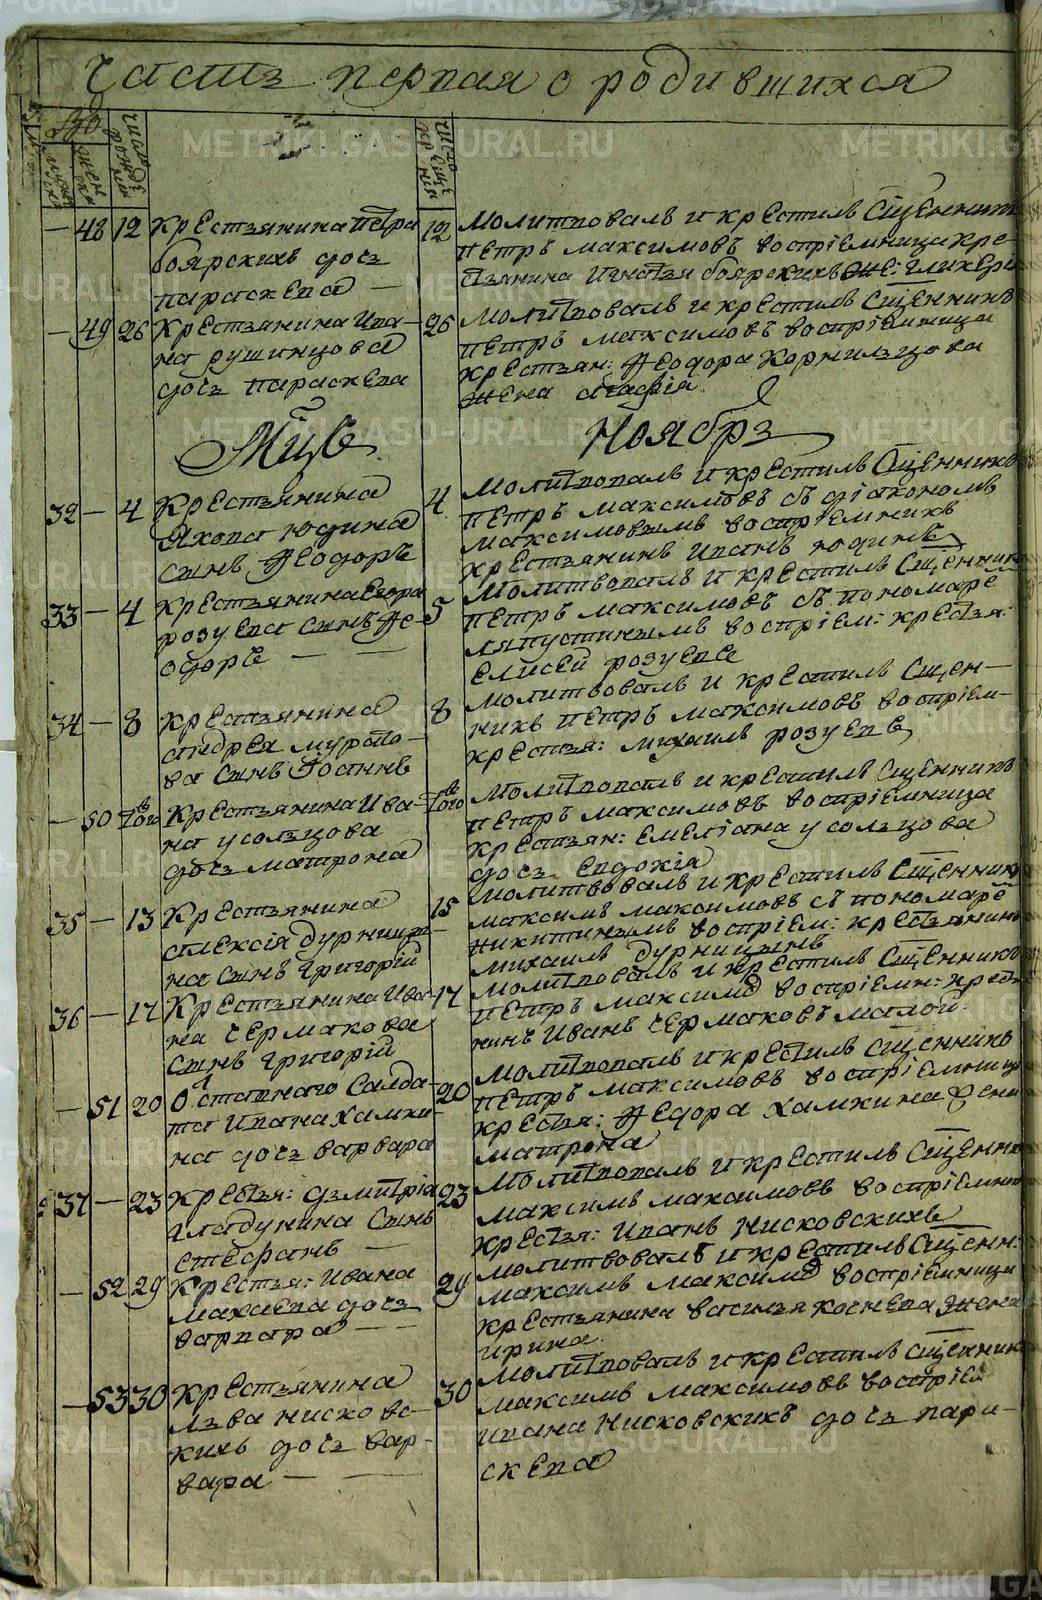 часть первая о родившихся
число рожде нiя
число кр еще нiя
— 48 12 Крестьянина Петра
боярскихъ дочь
параскева —
12 Молитвовалъ и крестилъ Сщенникъ
петръ максимовъ воспрiемница кре-
стьянина Игнатья боярскихъ же: гликерiя
— 49 26 Крестьянина Ива-
на рушинцова
дочь параскева
26 Молитвовалъ и крестилъ Сщенникъ
петръ максимовъ воспрiемница
крестьян: Ѳеодора Корнильцова
жена агафiя
Мцъ Ноябрь
32 — 4 Крестьянина
Якова Юдина
сынъ Ѳеодоръ
4 Молитвовалъ и крестилъ Сщенникъ
петръ максимовъ съ дiакономъ
максимовымъ воспрiемникъ
крестьянинъ иванъ юдинъ
33 — 4 Крестьянина Егора
розуева сынъ Ѳе-
одоръ — —
5 Молитвовалъ и крестилъ Сщенникъ
петръ максимовъ съ пономаре
ляпустинымъ воспрiем: крестья:
Елисей розуевъ
34 — 8 Крестьянина
андрея мурато-
ва сынъ Iоаннъ
8 молитвовалъ и крестилъ Сщен-
никъ петръ максимовъ воспрiем-
крестья: михаилъ розуевъ
— 50 того Крестьянина Ива-
на усольцова
дочь матрона
того Молитвовалъ и крестилъ Сщенникъ
петръ максимовъ воспрiемница
крестьян: Емелiана усольцова
дочь евдокiя
35 — 13 Крестьянина
алексiя дурници-
на сынъ григорiй
15 молитвовалъ и крестилъ Сщенникъ
максимъ максимовъ съ пономаре
никитинымъ воспрiем: крестьянинъ
михаилъ дурницынъ
36 — 17 Крестьянина Ива-
на чермакова
сынъ григорiй
17 молитвовалъ и крестилъ Сщенникъ
петръ максимо воспрiемн: крестья
нинъ Иванъ чермаковъ малой
— 51 20 Отставнаго Салда-
та Ивана хамки-
на дочь варвара
20 Молитвовалъ и крестилъ Сщенникъ
петръ максимовъ воспрiемница
крестья: Ѳедора хамкина жена
матрона
37 — 23 Крестья: дьмитрiя
гладунина Сынъ
стефанъ —
23 Молитвовалъ и крестилъ Сщенникъ
максимъ максимовъ воспрiемникъ
крестья: иванъ нисковскихъ
— 52 29 Крестья: Ивана
махнева дочь
варвара — —
29 молитвовалъ и крестилъ Сщенн:
максимъ максимо воспрiемница
крестьянина василья коснева жена
ирина
— 53 30 Крестьянина
льва нисковс-
кихъ дочь вар-
вара — —
30 Молитвовалъ и крестилъ сщенникъ
максимъ максимовъ воспрiем
ивана нисковскихъ дочь пара-
скева